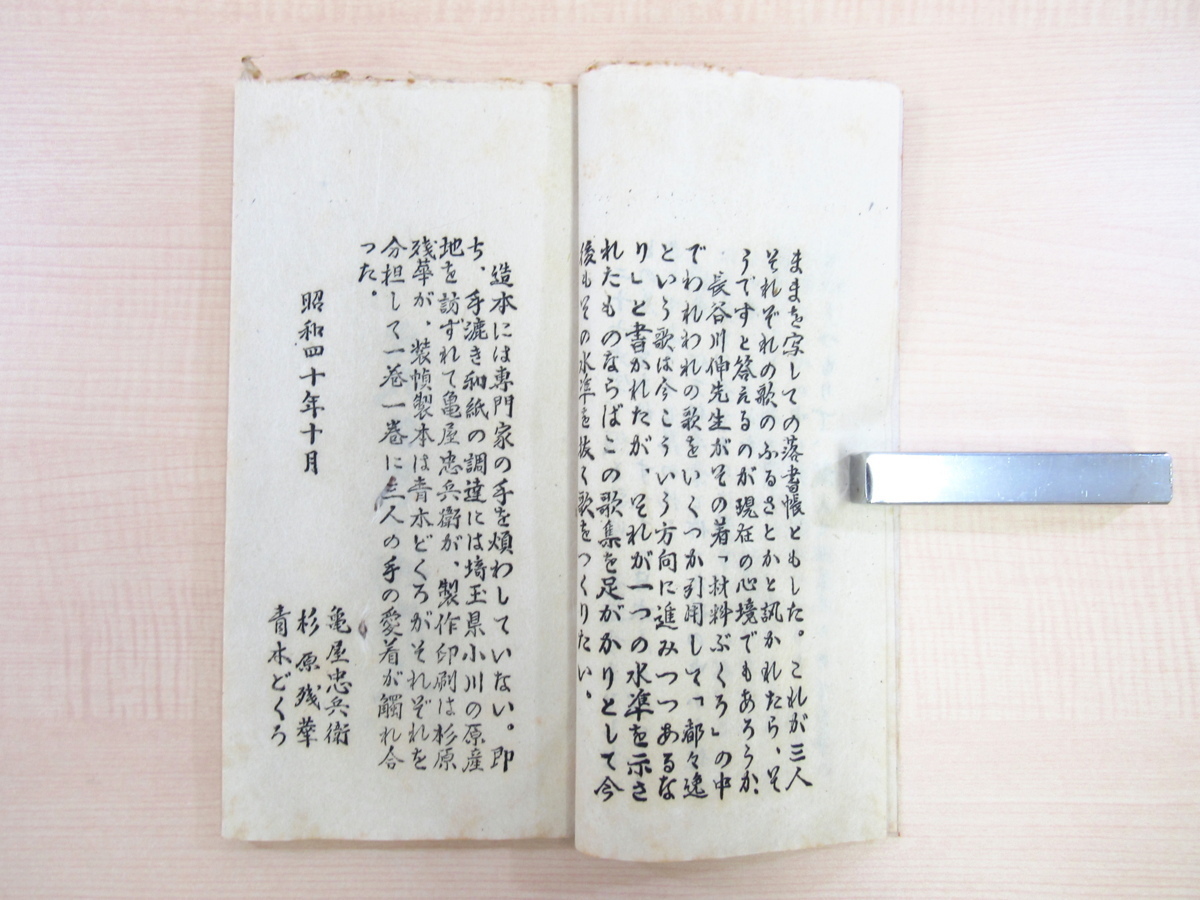 ままを写しての落書帳ともした。これが三人
それぞれの歌のふるさとかと訊かれたら、そ
うですと答えるのが現在の心境でもあろうか。
長谷川伸先生がその著「材料ぶくろ」の中
でわれわれの歌をいくつか引用して「都々逸
という歌は今こういう方向に進みつつあるな
り」と書かれたが、それが一つの水準を示さ
れたものならばこの歌集を足がかりとして今
後もその水準を抜く歌をつくりたい。
造本には専門家の手を煩わしていない。即
ち、手漉き和紙の調達には埼玉県小川の原産
地を訪ずれて亀屋忠兵衛が、製作印刷は杉原
残華が、装幀製本は青木どくろがそれぞれを
分担して一巻一巻に三人の手の愛着が觸れ合
った。
昭和四十年十月
亀屋忠兵衛
杉原残華
青木どくろ